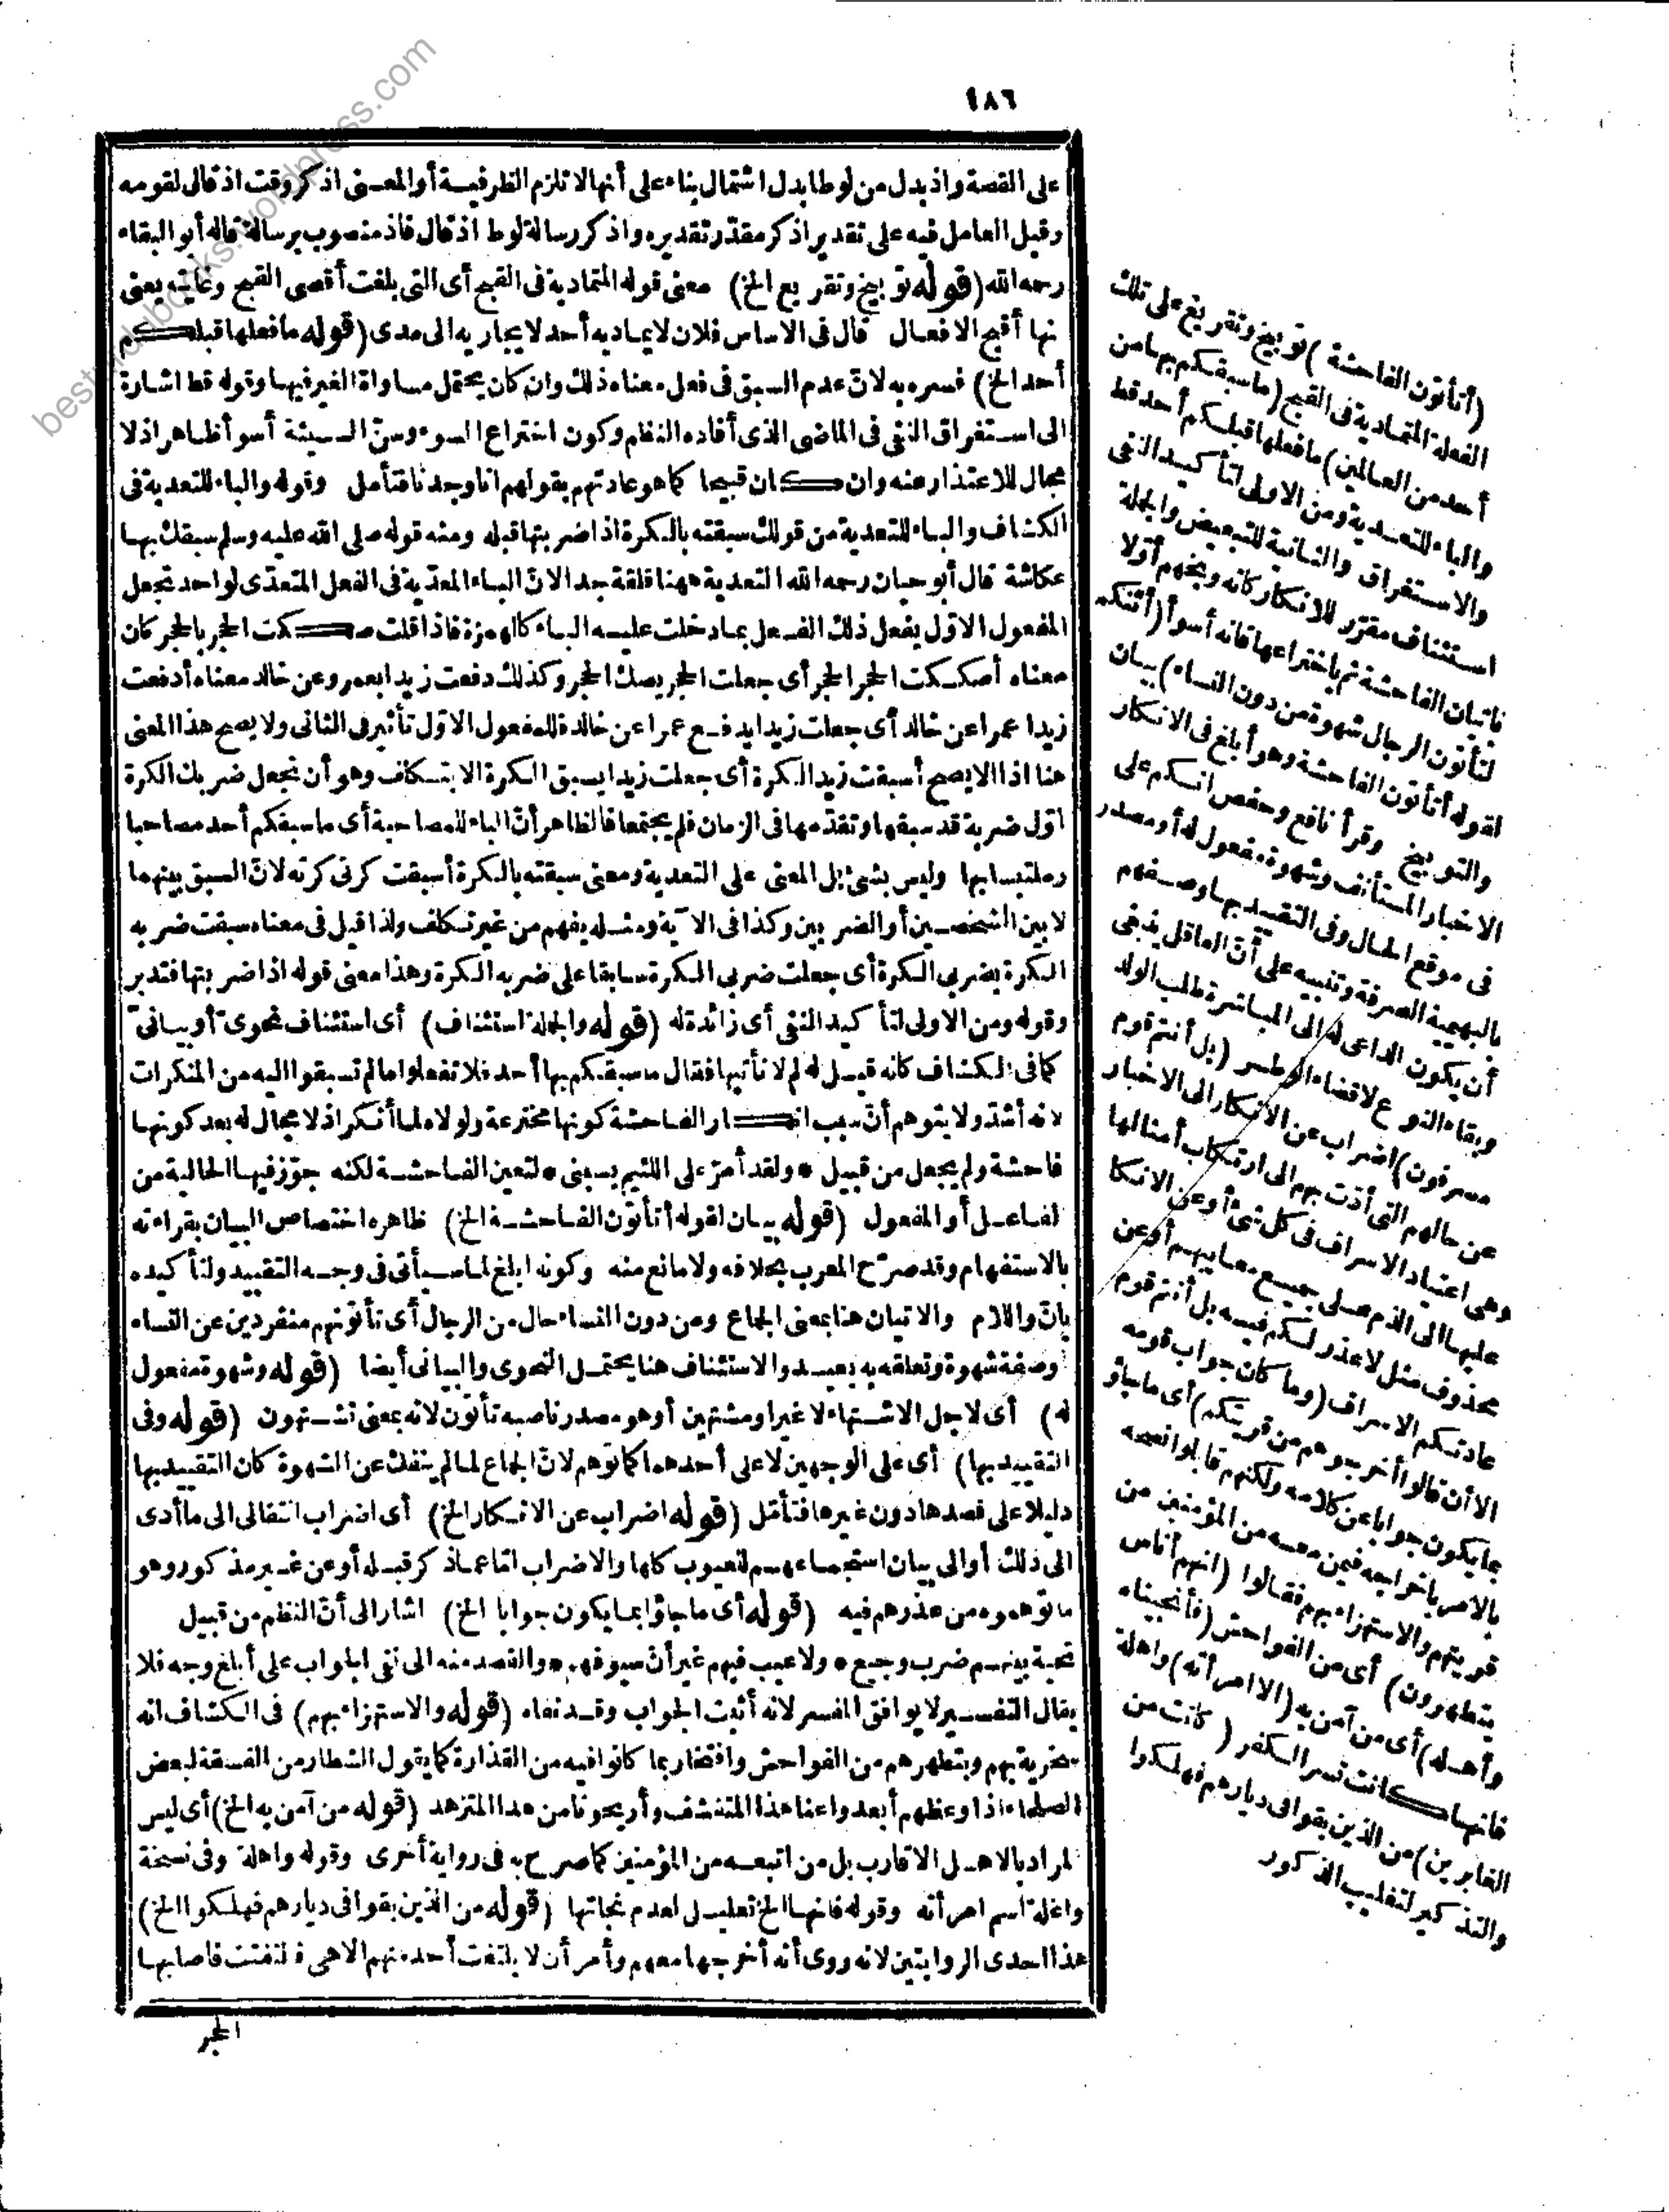 ١٨٦
على القصة واذ بدل من لوطا بدل اشتمال بناء على أنها لا تلزم الظرفية أو المعنى اذكر وقت اذ قال لقومه
وقيل العامل فيه على تقدير اذكر مقدّر تقديره واذكر رسالة لوط اذ قال فاذ منصوب برسالة قاله أبو البقاء
رحمه الله (قوله توبيخ وتقريع الخ) معنى قوله المتمادية فى القبح أى التى بلغت أقصى القبح وغايته يعنى
نها أقبح الافعال قال فى الاساس فلان لا يماديه أحد لا يجاريه الى مدى (قوله ما فعلها قبلكم
أحد الخ) فسره به لانّ عدم السبق فى فعل معناه ذلك وان كان يحتمل مساواة الغير فيها وقوله قط اشارة
الى استغراق النفى فى الماضى الذى أفاده النظم وكون اختراع السوء وسنّ السيئة أسوأ ظاهر اذ لا
مجال للاعتذار عنه وان كان قبيحا كما هو عادتهم بقولهم انا وجدنا فتأمل وقوله والباء للتعدية فى
الكشاف والباء للتعدية من قولك سبقته بالكرة اذا ضربتها قبله ومنه قوله صلى الله عليه وسلم سبقك بها
عكاشة قال أبو حيان رحمه الله التعدية ههنا قلقة جدا لانّ الباء المعدّية فى الفعل المتعدّى لواحد تجعل
المفعول الاوّل يفعل ذلك الفعل بما دخلت عليه الباء كالهمزة فاذا قلت صككت الحجر بالحجر كان
معناه أصككت الحجر الحجر أى جعلت الحجر يصك الحجر وكذلك دفعت زيدا بعمرو عن خالد معناه أدفعت
زيدا عمرا عن خالد أى جعلت زيدا يدفع عمرا عن خالد فللمفعول الاوّل تأثير فى الثانى ولا يصح هذا المعنى
هنا اذا لا يصح أسبقت زيد الكرة أى جعلت زيدا يسبق الكرة الا بتكلف وهو أن تجعل ضربك الكرة
اوّل ضربة قد سبقها وتقدّمها فى الزمان فلم يجتمعا فالظاهر أنّ الباء للمصاحبة أى ما سبقكم أحد مصاحبا
وملتبسا بها وليس بشئ بل المعنى على التعدية ومعنى سبقته بالكرة أسبقت كرتى كرته لانّ السبق بينهما
لا بين الشخصين أو الضربين وكذا فى الآية ومثله يفهم من غير تكلف ولذا قيل فى معناه سبقت ضربه
الكرة بضربى الكرة أى جعلت ضربى الكرة سابقا على ضربه الكرة وهذا معنى قوله اذا ضربتها فتدبر
وقوله ومن الاولى لتأكيد النفى أى زائدة له (قوله والجملة استئناف) أى استئناف نحوىّ أو بيانىّ
كما فى الكشاف كانه قيل له لم لا نأتيها فقال ما سبقكم بها أحد فلا تفعلوا ما لم تسبقوا اليه من المنكرات
لانه أشدّ ولا يتوهم أنّ سبب انكار الفاحشة كونها مخترعة ولولاه لما أنكر اذ لا مجال له بعد كونها
فاحشة ولم يجعل من قبيل * ولقد أمرّ على اللئيم يسبنى * لتعين الفاحشة لكنه جوّز فيها الحالية من
لفاعل أو المفعول (قوله بيان لقوله أتأتون الفاحشة الخ) ظاهره اختصاص البيان بقراءته
بالاستفهام وقد صرّح المعرب بخلافه ولا مانع منه وكونه ابلغ لما سيأتى فى وجه التقييد ولتأكيده
بانّ واللام والاتيان هنا بمعنى الجماع ومن دون النساء حال من الرجال أى تأتونهم منفردين عن النساء
وصفة شهوة وتعلقه به بعيد والاستئناف هنا يحتمل النحوى والبيانى أيضا (قوله وشهوة مفعول
له) أى لاجل الاشتهاء لا غير او مشتهين أو هو مصدر ناصبه تأتون لانه بمعنى تشتهون (قوله وفى
التقييد بها) أى على الوجهين لا على أحدهما كما توهم لانّ الجماع لما لم ينفك عن الشهوة كان التقييد بها
دليلا على قصدها دون غيرها فتأمّل (قوله اضراب عن الانكار الخ) أى اضراب انتقالى الى ما أدى
الى ذلك أو الى بيان استجماعهم للعيوب كلها والاضراب امّا عما ذكر قبله أو عن غير مذكور وهو
ما توهموه من عذرهم فيه (قوله أى ما جاؤا بما يكون جوابا الخ) اشار الى أنّ النظم من قبيل
تحية بينهم ضرب وجيع * ولا عيب فيهم غير أنّ سيوفهم * والقصد منه الى نفى الجواب على أبلغ وجه فلا
يقال التفسير لا يوافق المفسر لانه أثبت الجواب وقد نفاه (قوله والاستهزاء بهم) فى الكشاف انه
سخرية بهم وبتطهرهم من الفواحش وافتخار بما كانوا فيه من القذارة كما يقول الشطار من الفسقة لبعض
الصلحاء اذا وعظهم أبعدوا عنا هذا المتقشف وأريحونا من هذا المتزهد (قوله من آمن به الخ) أى ليس
لمراد بالاهل الاقارب بل من اتبعه من المؤمنين كما صرح به فى رواية أخرى وقوله واهلة وفى نسخة
واغلة اسم امرأته وقوله فانها الخ تعليل لعدم نجاتها (قوله من الذين بقوا فى ديارهم فهلكوا الخ)
هذا احدى الروايتين لانه روى أنه أخرجها معهم وأمر أن لا يلتفت أحد منهم الا هى فالتفتت فاصابها
الحجر
(أتأتون الفاحشة) توبيخ وتقريع على تلك
الفعلة المتمادية فى القبح (ما سبقكم بها من
أحد من العالمين) ما فعلها قبلكم أحد قط
والباء للتعدية ومن الاولى لتأكيد النفى
والاستغراق والثانية للتبعيض والجملة
استئناف مقرّر للانكار كانه وبخهم أوّلا
باتيان الفاحشة ثم باختراعها فانه أسوأ (أئنكم
لتأتون الرجال شهوة من دون النساء) بيان
لقوله أتأتون الفاحشة وهو أبلغ فى الانكار
والتوبيخ وقرأ نافع وحفص انكم على
الاخبار المستأنف وشهوة مفعول له أو مصدر
فى موقع الحال وفى التقييد بها وصفهم
بالبهيمية الصرفة وتنبيه على أنّ العاقل ينبغى
أن يكون الداعى له الى المباشرة طلب الولد
وبقاء النوع لا قضاء الوطر (بل أنتم قوم
مسرفون) اضراب عن الانكار الى الاخبار
عن حالهم التى أدّت بهم الى ارتكاب أمثالها
وهى اعتياد الاسراف فى كل شئ أو عن الانكا
عليها الى الذم على جميع معايبهم أو عن
محذوف مثل لا عذر لكم فيه بل أنتم قوم
عادتكم الاسراف (وما كان جواب قومه
الا أن قالوا أخرجوهم من قريتكم) أى ما جاؤ
بما يكون جوابا عن كلامه ولكنهم قابلوا نصحه
بالامر باخراجه فيمن معه من المؤمنين من
قريتهم والاستهزاء بهم فقالوا (انهم أناس
يتطهرون) أى من الفواحش (فأنجيناه
وأهله) أى من آمن به (الا امرأته) واهلة
فانها كانت تسر الكفر (كانت من
الغابرين) من الذين بقوا فى ديارهم فهلكوا
والتذكير لتغليب الذكور
besturdubooks.wordpress.com